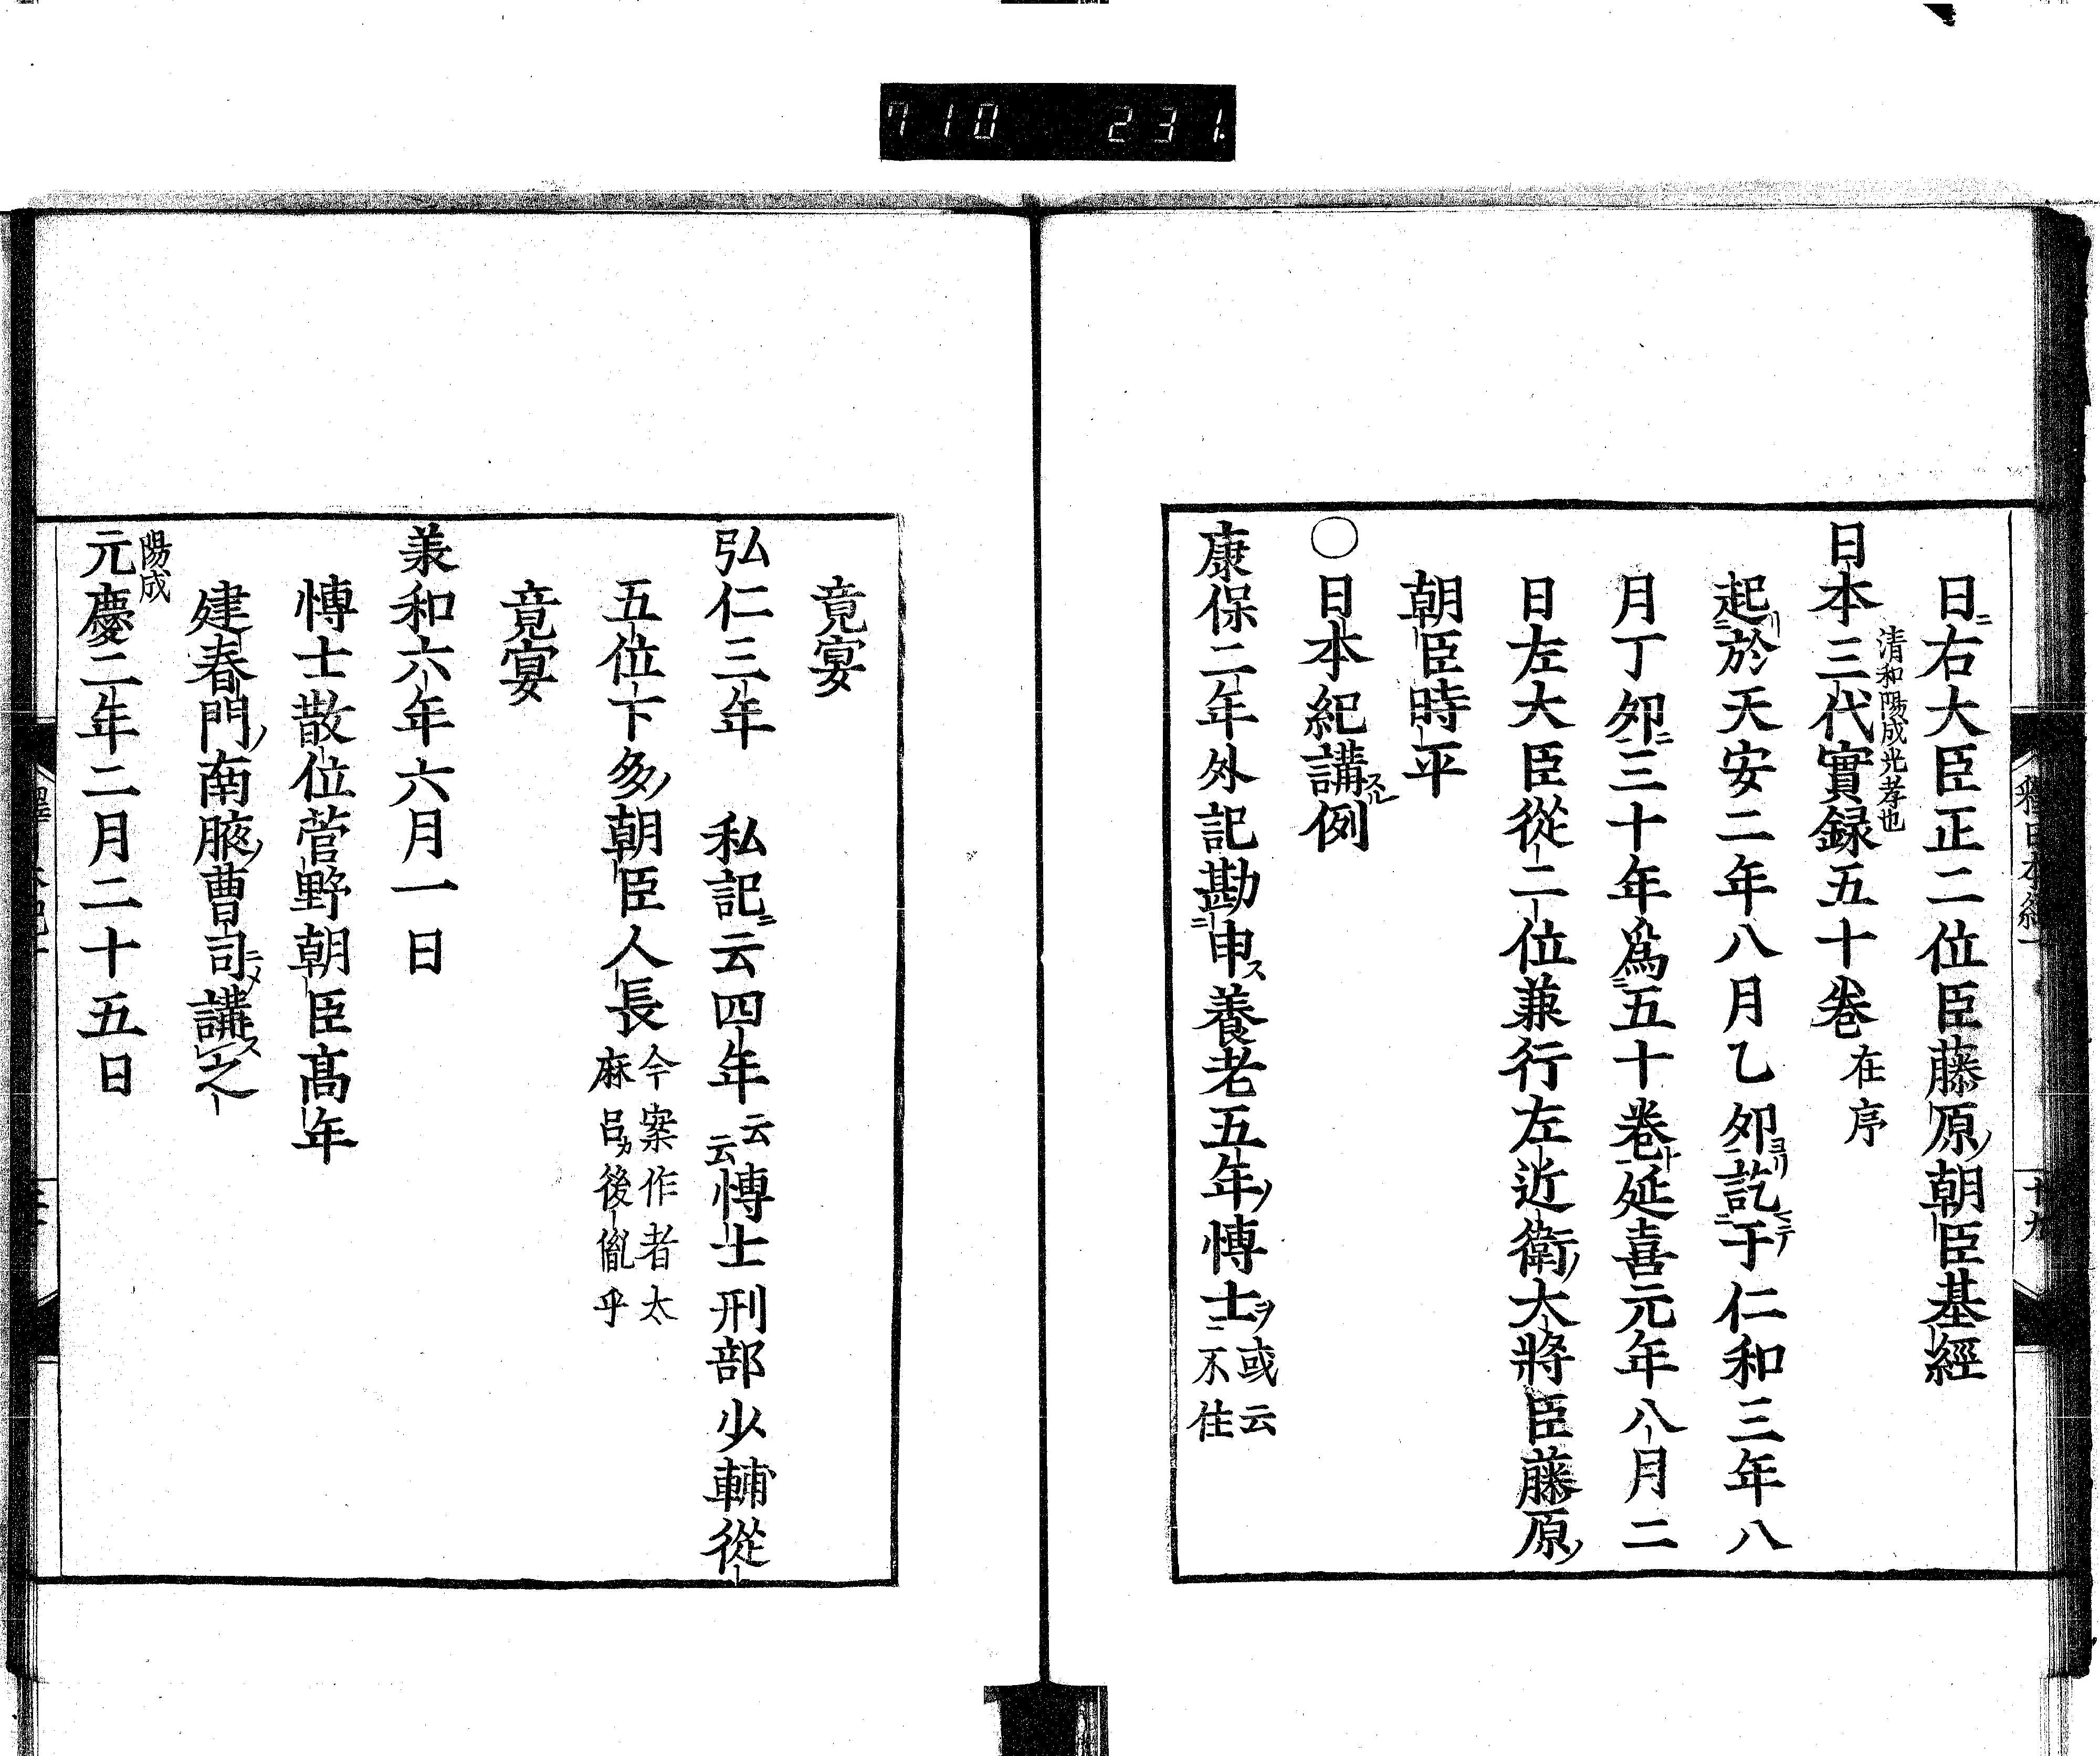 710 231
日右大臣正二位臣藤原朝臣基經
清和陽成光孝也
日本三代實録五十巻 在序
起於天安二年八月乙夘訖于仁和三年八
月丁夘三十年爲五十巻延喜元年八月二
日左大臣從二位兼行左近衛大將臣藤原
朝臣時平
〇日本紀講例
康保二年外記勘申養老五年博士或云不住
十九
竟宴
弘仁三年 私記云四年云云博士刑部少輔從
五位下多朝臣人長今案作者太麻呂後胤乎
竟宴
義和六年六月一日
博士散位菅野朝臣髙年
建春門南腋曹司講之
陽成
元慶二年二月二十五日